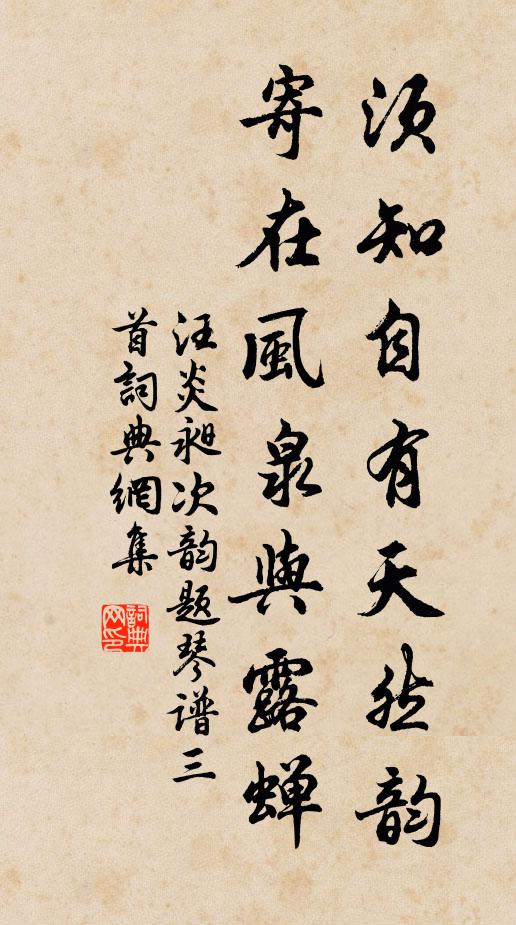 须知自有天然韵
寄在風泉與露蝉
汪炎昶次韵题琴谱三
首詞典網集
詞典
网印